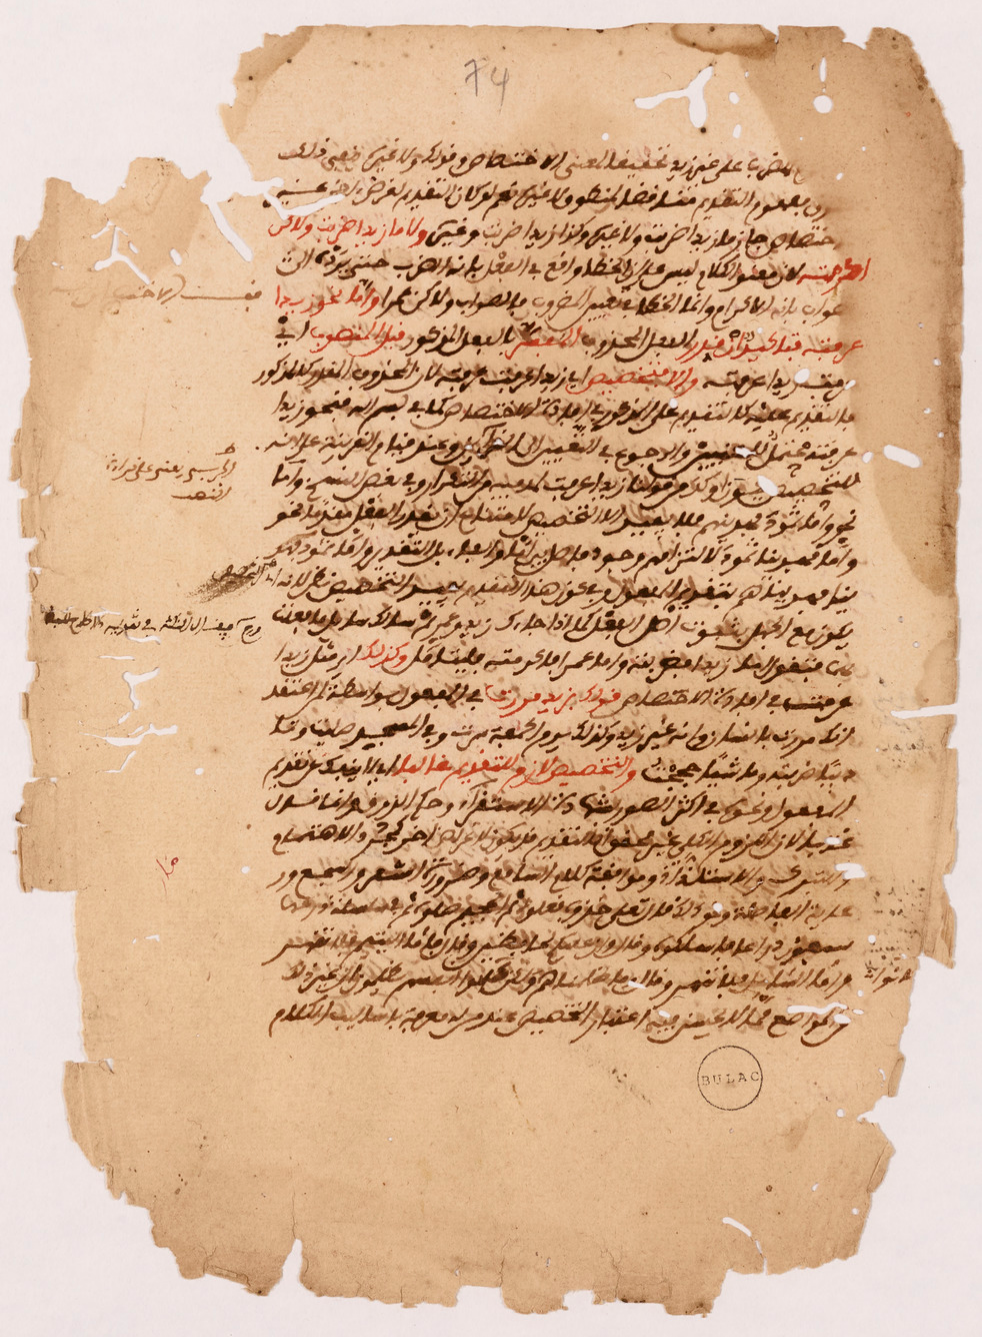 الضرب على غير زيد تحقيقا لمعنى الاختصاص وقولك ولا غيره ينفي ذلك
مفهوم التقديم مناقضا لمنطوق ولا غيره نعم لو كان التقديم لغرض اخر غير
ختصاص جاز ما زيدا ضربت ولا غيره وكذا زيدا ضربت وغيره ولا ما زيدا ضربت ولاكن
اكرمته لان مبنى الكلام ليس على ان الخطا واقع في الفعل بانه الضرب حتى يرد الى
صواب بانه الاكرام وانما الخطا في تعيين المضروب فالصواب ولاكن عمرا واما نحو زيدا
عرفته فتاكيد ان قدر الفعل المحذوف المفسر بالفعل المذكور قبل المنصوب اي
عرفت زيدا عرفته والا فتخصيص اي زيدا عرفت عرفته لان المحذوف المقدر كالمذكور
فالتقديم عليه كالتقديم على المذكور في افادة الاختصاص كما في بسم الله فنحو زيدا
عرفته محتمل للمعنيين والرجوع في التعيين الى القرائن وعند قيام القرينة على انه
للتخصيص يكون اوكد من قولنا زيدا عرفت لما فيه من التكرار وفي بعض النسخ واما
نحو واما ثمود فهديناهم فلا يفيد الا التخصيص لامتناع ان يقدر الفعل مقدما نحو
واما فهدينا ثمود لالتزامهم وجود فاصل بين اما والفاء بل التقدير واما ثمود فهد
ينا فهديناهم بتقديم المفعول وفي كون هذا التقديم يفيد التخصيص نظر لانه
يكون مع الجهل بثبوت اصل الفعل كما اذا جاءك زيد وعمرو ثم سالك سائل ما فعلت
بهما فتقول اما زيدا فضربته واما عمرا فاكرمته فليتامل وكذلك اي مثل زيدا
عرفت في افادة الاختصاص قولك بزيد مررت في المفعول بواسطة لمن اعتقد
انك مررت بانسان وانه غير زيد وكذلك يوم الجمعة سرت وفي المسجد صليت وتا
ديبا ضربته وماشيا حججت والتخصيص لازم للتقديم غالبا اي لا ينفك عن تقديم
المفعول ونحوه في اكثر الصور بشهادة الاستقراء وحكم الذوق وانما قال
غالبا لان اللزوم الكلي غير متحقق اذ التقديم قد يكون لاغراض اخر كمجرد الاهتمام
والتبرك والاستلذاذ وموافقة كلام السامع وضرورة الشعر والسجع ور
عاية الفاصلة ونحو ذلك قال تعلى خذوه فغلوه ثم الجحيم صلوه ثم في سلسلة ذرعها
سبعون ذراعا فاسلكوه وقال وان عليكم لحافظين وقال فاما اليتيم فلا تقهر
واما السائل فلا تنهر وقال وما ظلمناهم ولكن كانوا انفسهم يظلمون الى غير ذلك
من المواضع مما لا يحسن فيه اعتبار التخصيص عند من له معرفة باساليب الكلام
74
BULAC